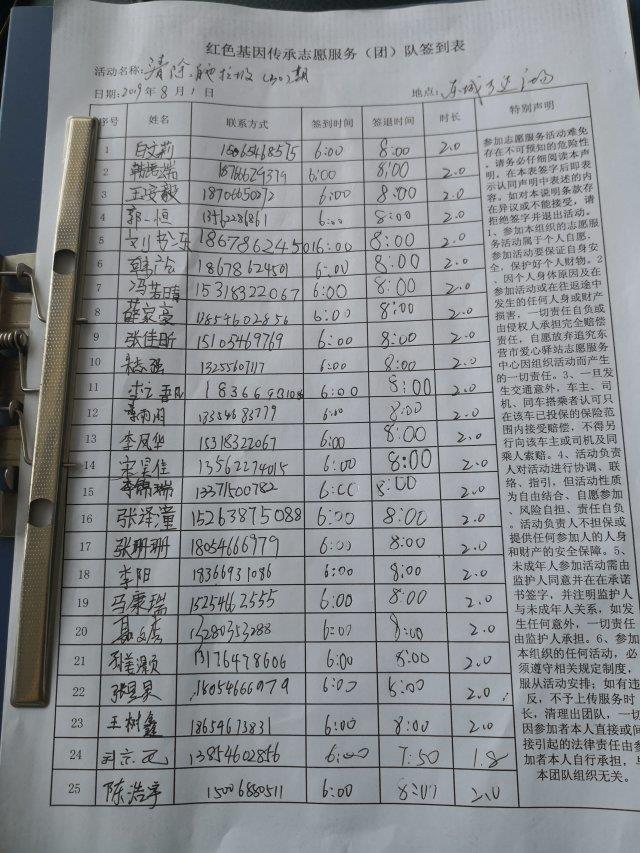 红色基因传承志愿服务（团）队签到表
活动名称：清除 垃圾
日期：2019年8月1日 地点：东城
序号 姓名 联系方式 签到时间 签退时间 时长 特别声明
1 白文莉 6:00 8:00 2.0
2 6:00 8:00 2.0
3 王安毅 18706650272 6:00 8:00 2.0
4 郭一恒 6:00 8:00 2.0
5 18678624501 6:00 8:00 2.0
6 18678624501 6:00 8:00 2.0
7 冯若晴 15318322067 6:00 8:00 2.0
8 薛家亮 13854602856 6:00 8:00 2.0
9 张佳昕 15105469769 6:00 8:00 2.0
10 13255607117 6:00 8:00 2.0
11 6:00 8:00 2.0
12 13354683779 6:00 8:00 2.0
13 李凤华 15318322067 6:00 8:00 2.0
14 13562274015 6:00 8:00 2.0
15 李锦瑞 13371500782 6:00 8:00 2.0
16 张泽潼 15263875088 6:00 8:00 2.0
17 张珊珊 18054666979 6:00 8:00 2.0
18 李阳 18366931086 6:00 8:00 2.0
19 马康瑞 15254662555 6:00 8:00 2.0
20 13280353288 6:00 8:00 2.0
21 13176478606 6:00 8:00 2.0
22 18054666979 6:00 8:00 2.0
23 王树鑫 18654673831 6:00 8:00 2.0
24 13854602856 6:00 7:50 1.8
25 陈浩宇 15006880511 6:00 8:00 2.0
参加志愿服务活动难免
存在不可预知的危险性
，请务必仔细阅读本声
明，在本表签字后即表
示认同声明中表述的内
容。如对本说明条款存
在异议或不能接受，请
拒绝签字并退出活动。
1、参加本组织的志愿服
务活动属于个人自愿，
参加活动要保证自身安
全，保护好个人财物。2
、因个人身体原因及在
参加活动或在往返途中
发生的任何人身或财产
损害，一切责任自负或
由侵权人承担完全赔偿
责任，自愿放弃追究东
营市爱心驿站志愿服务
中心因组织活动而产生
的一切责任。3、一旦发
生交通意外，车主、司
机、同车搭乘者认可只
在该车已投保的保险范
围内接受赔偿，不得另
行向该车主或司机及同
乘人索赔。4、活动负责
人对活动进行协调、联
络、指引，但活动性质
为自由结合、自愿参加
、风险自担、责任自负
。活动负责人不担保或
提供任何参加人的人身
和财产的安全保障。5、
未成年人参加活动需由
监护人同意并在在承诺
书签字，并注明监护人
与未成年人关系，如发
生任何意外，一切责任
由监护人承担。6、参加
本组织的任何活动，必
须遵守相关规定制度，
服从活动安排；如有违
反，不予上传服务时
长，清理出团队，一切
因参加者本人直接或间
接引起的法律责任由参
加者本人自行承担，与
本团队组织无关。